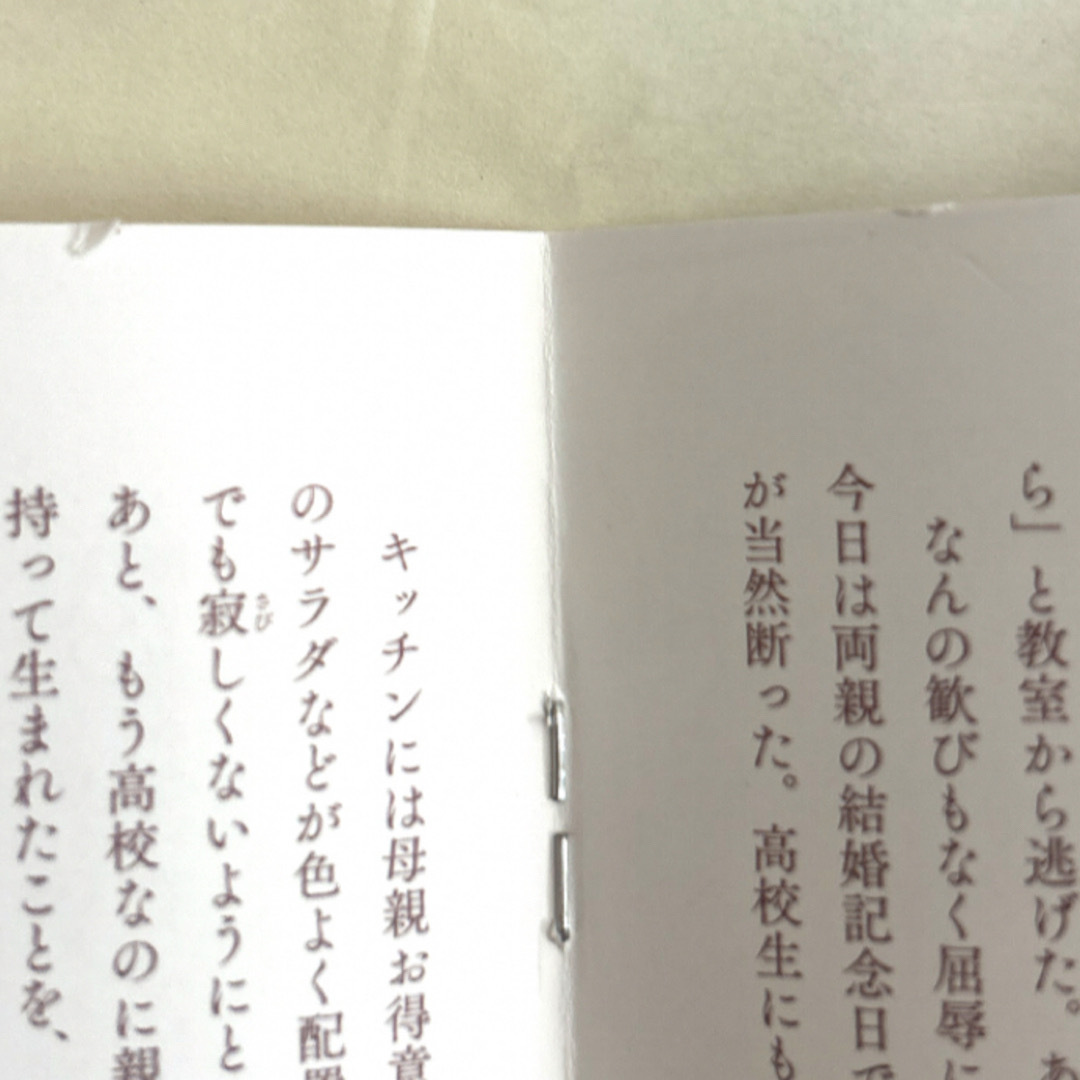 ら」と教室から逃げた。あ
なんの歓びもなく屈辱に
今日は両親の結婚記念日で
が当然断った。高校生にも
キッチンには母親お得意
のサラダなどが色よく配置
でも寂しくないようにと
さび
あと、もう高校なのに親
持って生まれたことを、